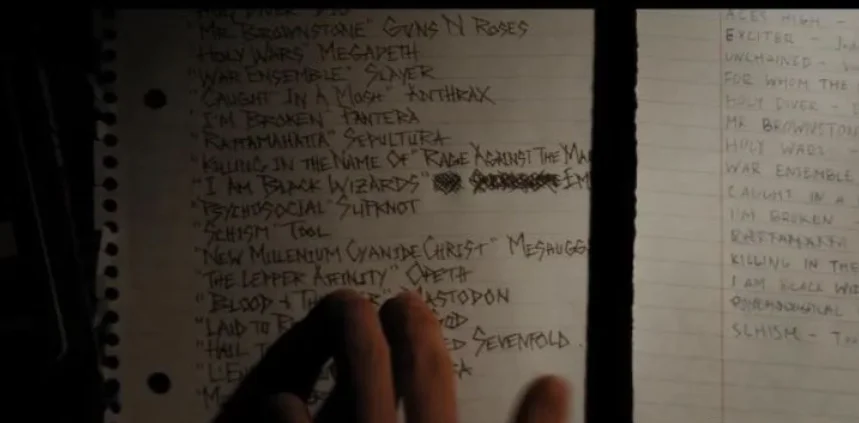 "HOLY DIVER" DIO
"MR. BROWNSTONE" GUNS N ROSES
"HOLY WARS" MEGADETH
"WAR ENSEMBLE" SLAYER
"CAUGHT IN A MOSH" ANTHRAX
"I'M BROKEN" PANTERA
"RATAMAHATTA" SEPULTURA
"KILLING IN THE NAME OF" RAGE AGAINST THE MA
"I AM BLACK WIZARDS" EM
"PSYCHOSOCIAL" SLIPKNOT
"SCHISM" TOOL
"NEW MILLENIUM CYANIDE CHRIST" MESHUGG
"THE LEPPER AFFINITY" OPETH
"BLOOD + TH MASTODON
"LAID TO GOD
"HAIL T ED SEVENFOLD
"L'E A
"M
ACES HIGH -
EXCITER - Jud
UNCHAINED -
FOR WHOM THE
HOLY DIVER -
MR BROWNSTON
HOLY WARS -
WAR ENSEMBLE
CAUGHT IN A
I'M BROKEN
KILLING IN THE
I AM BLACK WIZ
PSYCHOSOCIAL
SCHISM - To